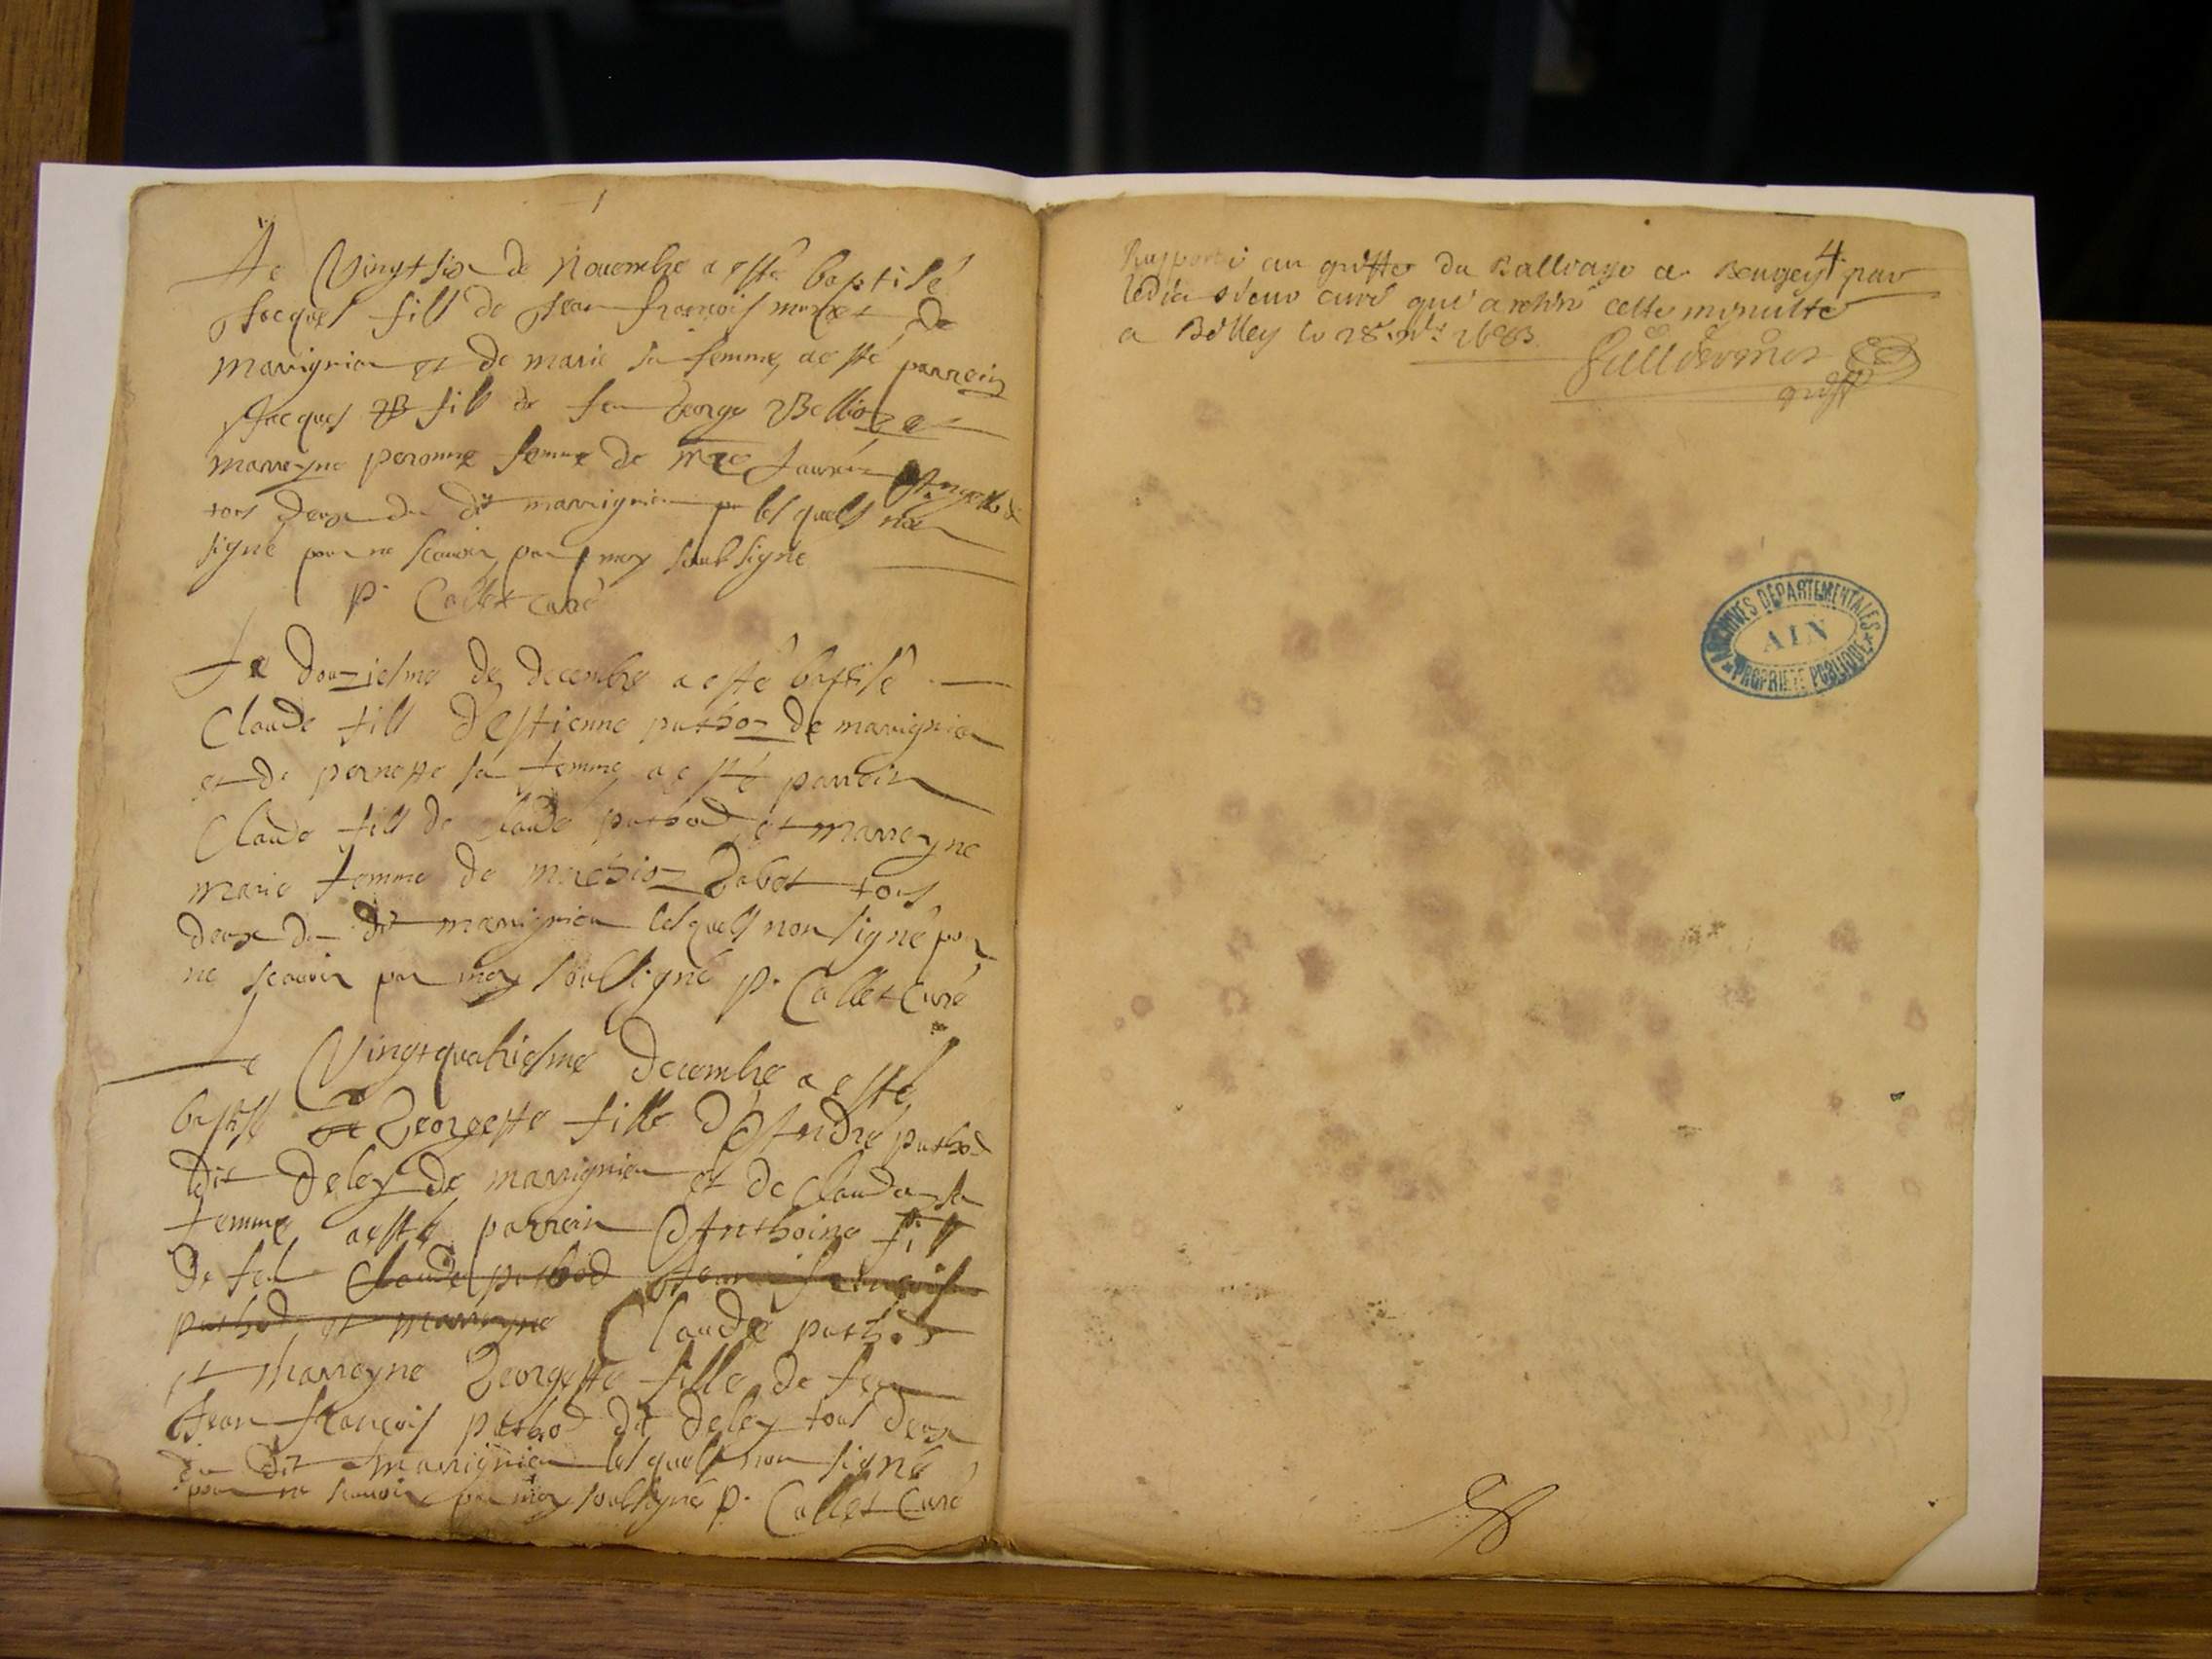 Le Vingtsix de Novembre a esté baptisé
Jacques fills de Jean françois de
marignieu et de marie sa femme, a esté parrein
Jacques fills de feu George Bellioz et
marreyne peronne femme de
tous deux du dit marignieu les quels non
signé pour ne scavoir par moy soubsigné
p. Collet curé
Le douziesme de decembre a esté baptisé
Claude fills d'estienne puthoz de marignieu
et de pernette sa femme, a esté parrein
Claude fills de Claude puthod, et marreyne
marie femme de tous
deux du dit marignieu lesquels non signé pour
ne scavoir par moy soubsigné p. Collet Curé
Le Vingtquatriesme decembre a esté
baptisé Georgette fille d'André puthod
dit deley de marignieu et de Claude sa
femme a esté parrein Anthoine fills
de feu Claude puthod Jean françois
puthod, et marreyne Claude puthod
et marreyne Georgette fille de feu
Jean françois puthod dit deley tous deux
du dit marignieu lesquels non signé
pour ne scavoir par moy soubsigné p. Collet Curé
4
Rapporté au greffe du Balliage de Beugey par
ledit sieur curé qui a retiré cette minutte
a Belley le 28 1683
greff
ARCHIVES DÉPARTEMENTALES
AIN
PROPRIÉTÉ PUBLIQUE